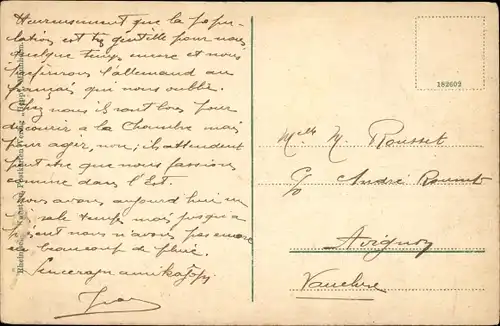 Heureusement que la popu-
lation est très gentille pour nous
quelque temps encore et nous
préférerons l'allemand au
français qui nous oublie.
Chez nous ils sont bons pour
discourir à la Chambre mais
pour agir, non, ils attendent
peut être que nous fassions
comme dans l'Est.
Nous avons aujourd'hui un
sale temps mais jusqu'à
présent nous n'avons pas encore eu
beaucoup de pluie.
Sincères amitiés
182602
Melle M. Rousset
c/o André
Avignon
Vaucluse